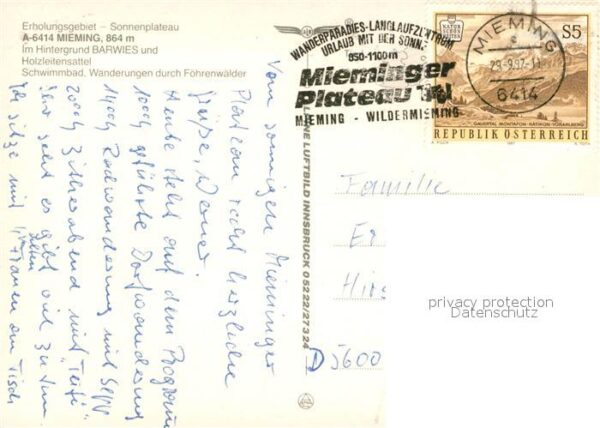 Erholungsgebiet – Sonnenplateau
A-6414 MIEMING, 864 m
Im Hintergrund BARWIES und
Holzleitensattel
Schwimmbad, Wanderungen durch Föhrenwälder
WANDERPARADIES-LANGLAUFZENTRUM
URLAUB MIT DER SONNE
850-1100m
Mieminger
Plateau
MIEMING - WILDERMIEMING
MIEMING
29.9.87-11
6414
NATUR
S5
GAUERTAL MONTAFON-RÄTIKON-VORARLBERG
REPUBLIK ÖSTERREICH
LUFTBILD INNSBRUCK 05222/27324
Vom sonnigen Mieminger
Plateau recht herzliche
Grüße, Werner.
Heute steht auf dem Programm
1000h geführte Dorfwanderung
1400h Radwanderung mit
2000h Zitherabend mit
Ihr seht es gibt viel zu tun
Ich sitze mit Frauen am Tisch
Familie
D 5600
privacy protection
Datenschutz